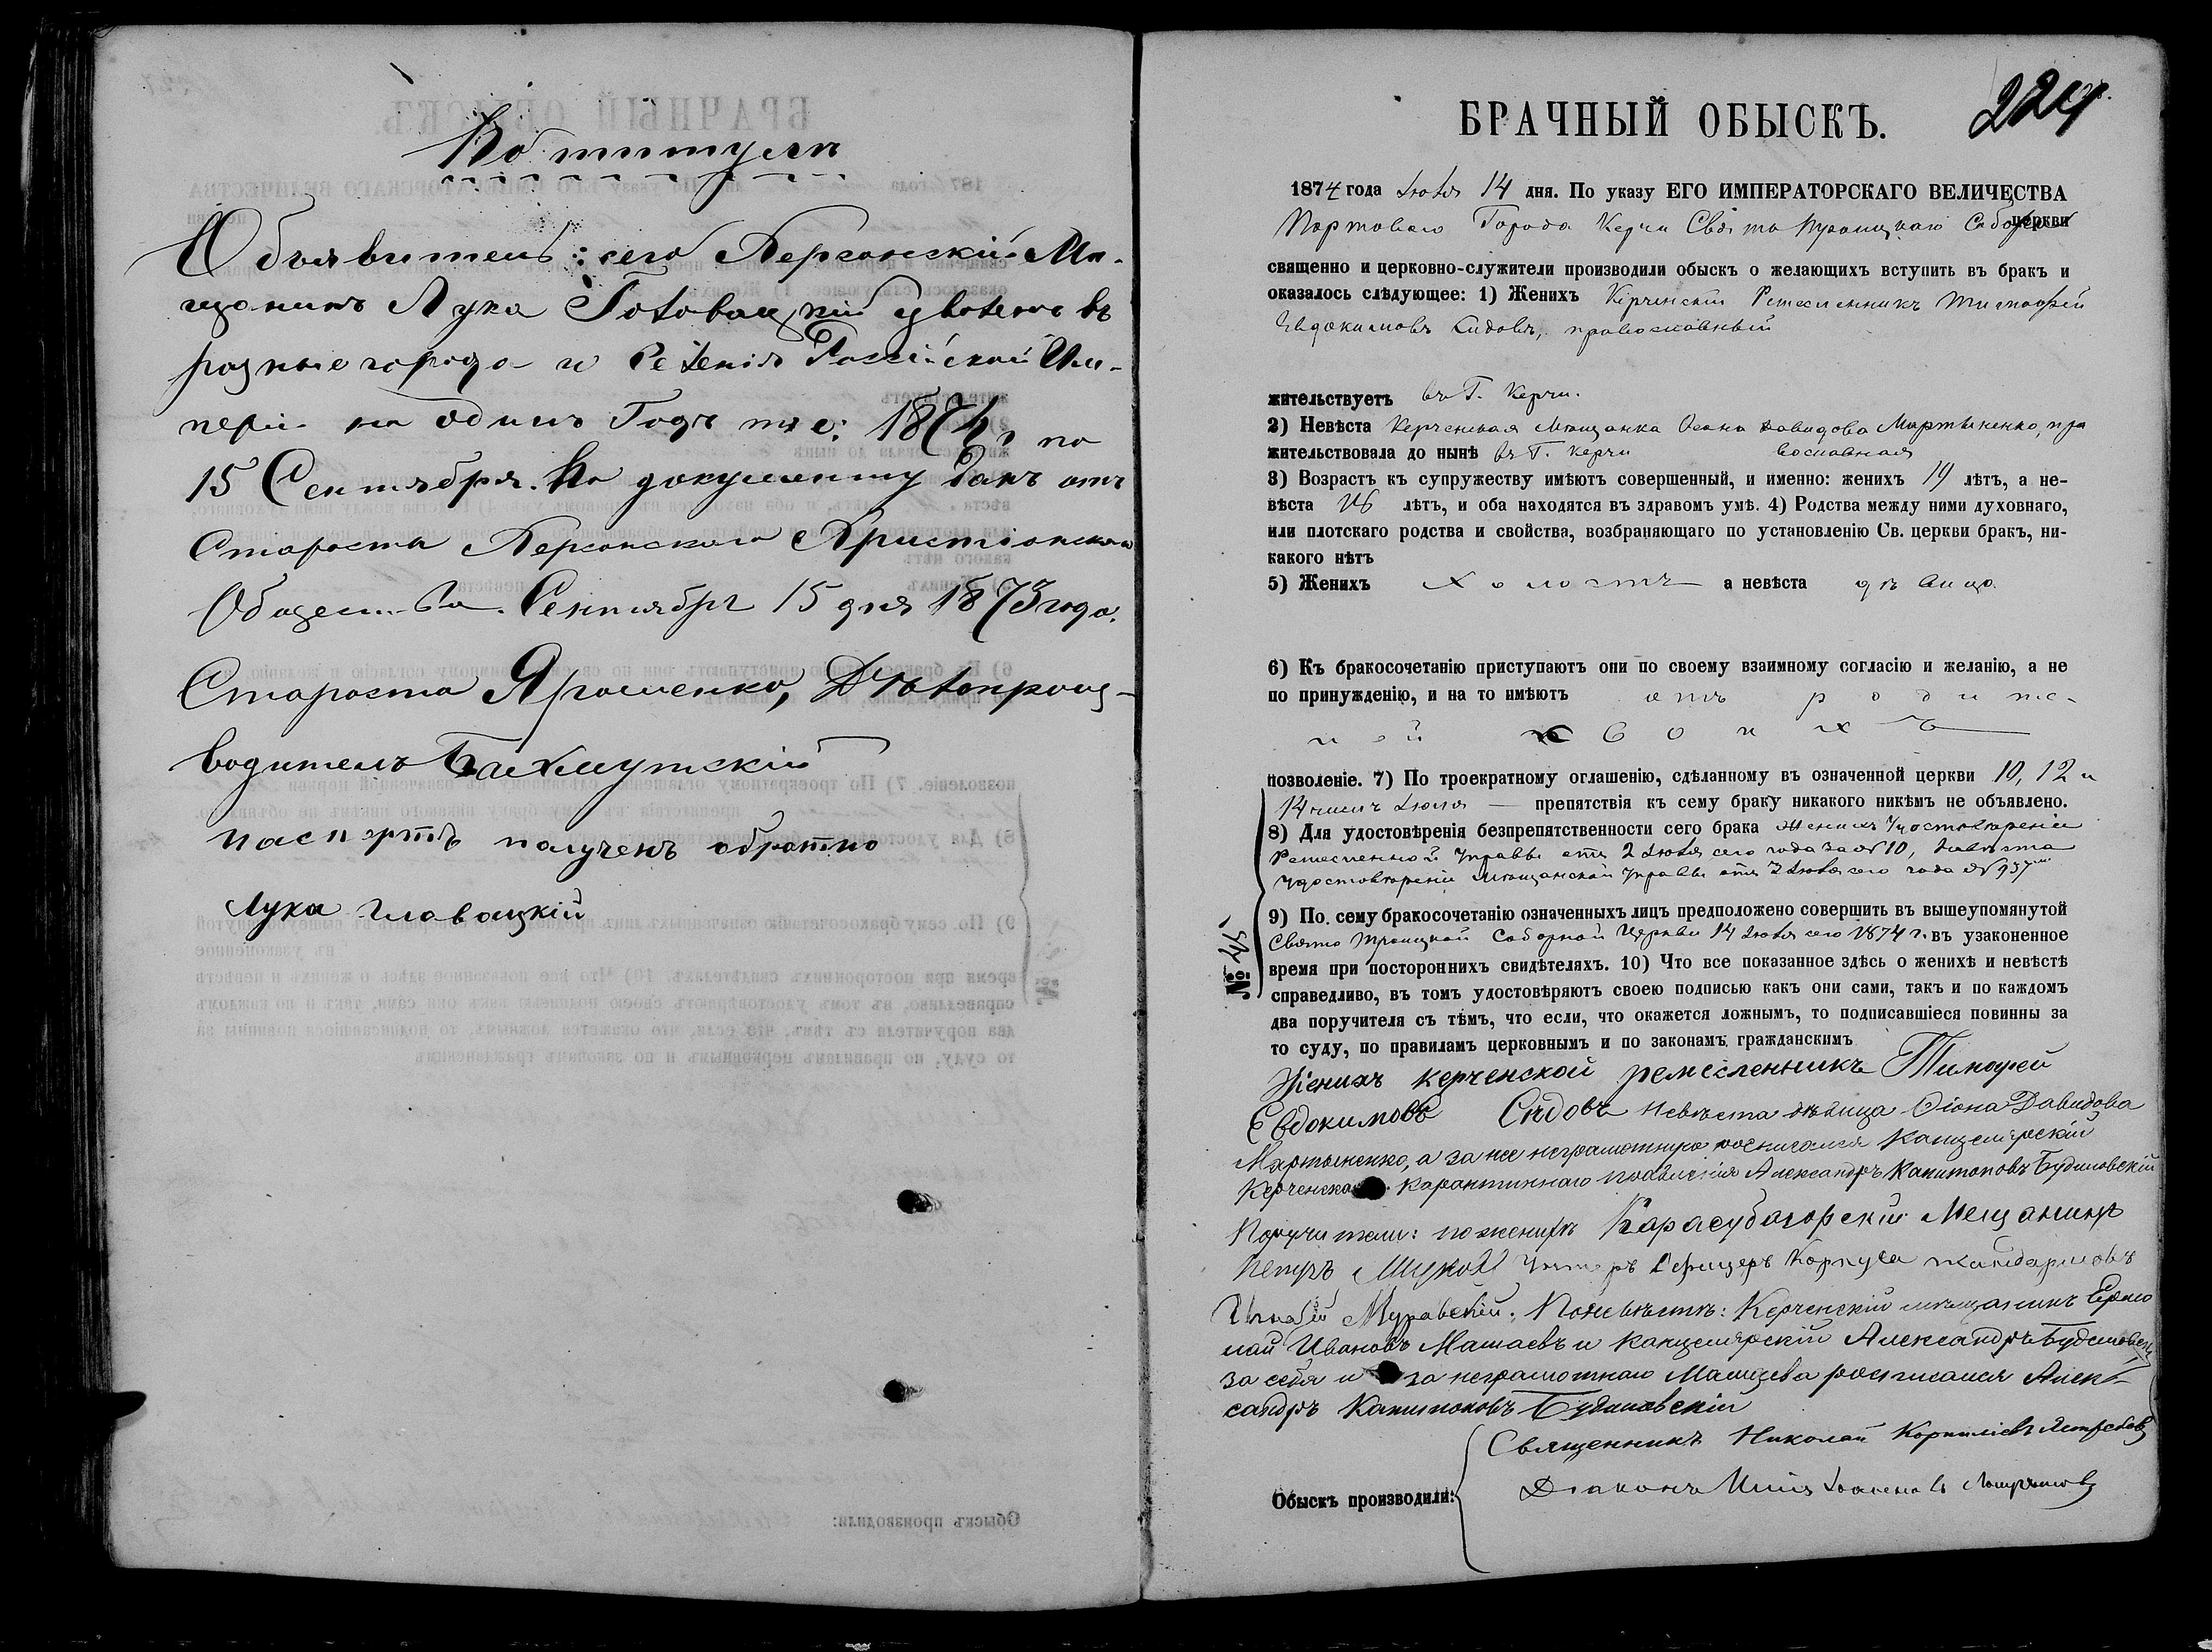 Объявитель: сего Херсонскій Мѣ-
щанинъ Лука уволенъ въ
разные города и Селенія Россійской Им-
періи на одинъ Годъ т. е. 1874 г по
15 Сентября. документу данъ отъ
Старосты Херсонскаго Христіанскаго
Общества Сентября 15 дня 1873 года.
Староста Ярошенко, Дѣлопроиз-
водитель Бахмутскій
паспортъ полученъ обратно
Лука Главацкій
224
БРАЧНЫЙ ОБЫСКЪ.
1874 года Іюля 14 дня. По указу ЕГО ИМПЕРАТОРСКАГО ВЕЛИЧЕСТВА
Портоваго Города Керчи Свято Троицкаго Собора церкви
священно и церковно-служители производили обыскъ о желающихъ вступить въ бракъ и
оказалось слѣдующее: 1) Женихъ Керченскій Ремесленникъ Тимофей
Евдокимовъ Сѣдовъ, православный
жительствуетъ въ Г. Керчи.
2) Невѣста Керченская Мѣщанка Давидова Мартыненко, пра
жительствовала до нынѣ въ Г. Керчи вославная
3) Возрастъ къ супружеству имѣютъ совершенный, и именно: женихъ 19 лѣтъ, а не-
вѣста лѣтъ, и оба находятся въ здравомъ умѣ. 4) Родства между ними духовнаго,
или плотскаго родства и свойства, возбраняющаго по установленію Св. церкви бракъ, ни-
какого нѣтъ
5) Женихъ холостъ а невѣста дѣвица.
6) Къ бракосочетанію приступаютъ они по своему взаимному согласію и желанію, а не
по принужденію, и на то имѣютъ отъ родите-
лей своихъ
позволеніе. 7) По троекратному оглашенію, сдѣланному въ означенной церкви 10, 12 и
14 чиселъ Іюля — препятствія къ сему браку никакого никѣмъ не объявлено.
8) Для удостовѣренія безпрепятственности сего брака Женихъ Удостовѣреніе
Ремесленной Управы отъ 2 Іюля сего года за № 10, Невѣста
Удостовѣреніе Мѣщанской Управы отъ 2 Іюля сего года №
9) По сему бракосочетанію означенныхъ лицъ предположено совершить въ вышеупомянутой
Свято Троицкой Соборной Церкви 14 Іюля сего 1874 г. въ узаконенное
№
время при постороннихъ свидѣтеляхъ. 10) Что все показанное здѣсь о женихѣ и невѣстѣ
справедливо, въ томъ удостовѣряютъ своею подписью какъ они сами, такъ и по каждомъ
два поручителя съ тѣмъ, что если, что окажется ложнымъ, то подписавшіеся повинны за
то суду, по правиламъ церковнымъ и по законамъ гражданскимъ
Женихъ керченской ремесленникъ Тимофей
Евдокимовъ Сѣдовъ невѣста дѣвица Давидова
Мартыненко, а за нее неграмотную росписался Канцелярскій
Карантиннаго правленія Александръ Капитоновъ Будиловскій
Поручители: по женихѣ Карасубазарскій Мещанинъ
Петръ Унтеръ Офицеръ Корпуса жандармовъ
Муравскій. По невѣстѣ: Керченскій мѣщанинъ Ермо
лай Ивановъ Машаевъ и канцелярскій Александръ Будиловскій
за себя и за неграмотнаго росписался Алек-
сандръ Капитоновъ Будиловскій
Священникъ Николай Корниліевъ Ястребовъ
Обыскъ производили:
Діаконъ